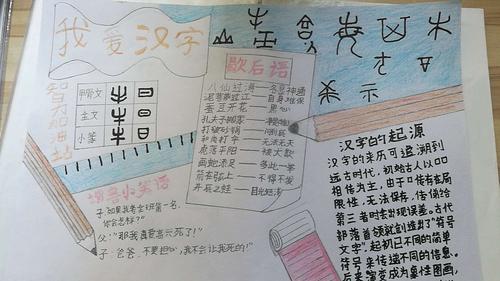 我爱汉字
智慧加油站
甲骨文
金文
小篆
歇后语
八仙过海——各显神通
泥菩萨过江——自身难保
蚕豆开花——黑心
孔夫子搬家——
打破砂锅——
和尚打伞——无法无天
虎落平阳——被犬欺
画蛇添足——多此一举
箭在弦上——不得不发
井底之蛙——目光短浅
谐音小笑话
子:如果我考全班第一名,
你会怎样?"
父:"那我真要高兴死了!"
子:爸爸,不要担心,我不会让你死的!"
汉字的起源
汉字的来历可追溯到
远古时代,初始古人以口
相传为主,由于口传有局
限性,无法保存,传便给
第三者时会出现误差。古代
部落首领就创造出了"符号
文字"。起初只不同的简单
符号来传递不同的信息。
后来演变成为象性图画,